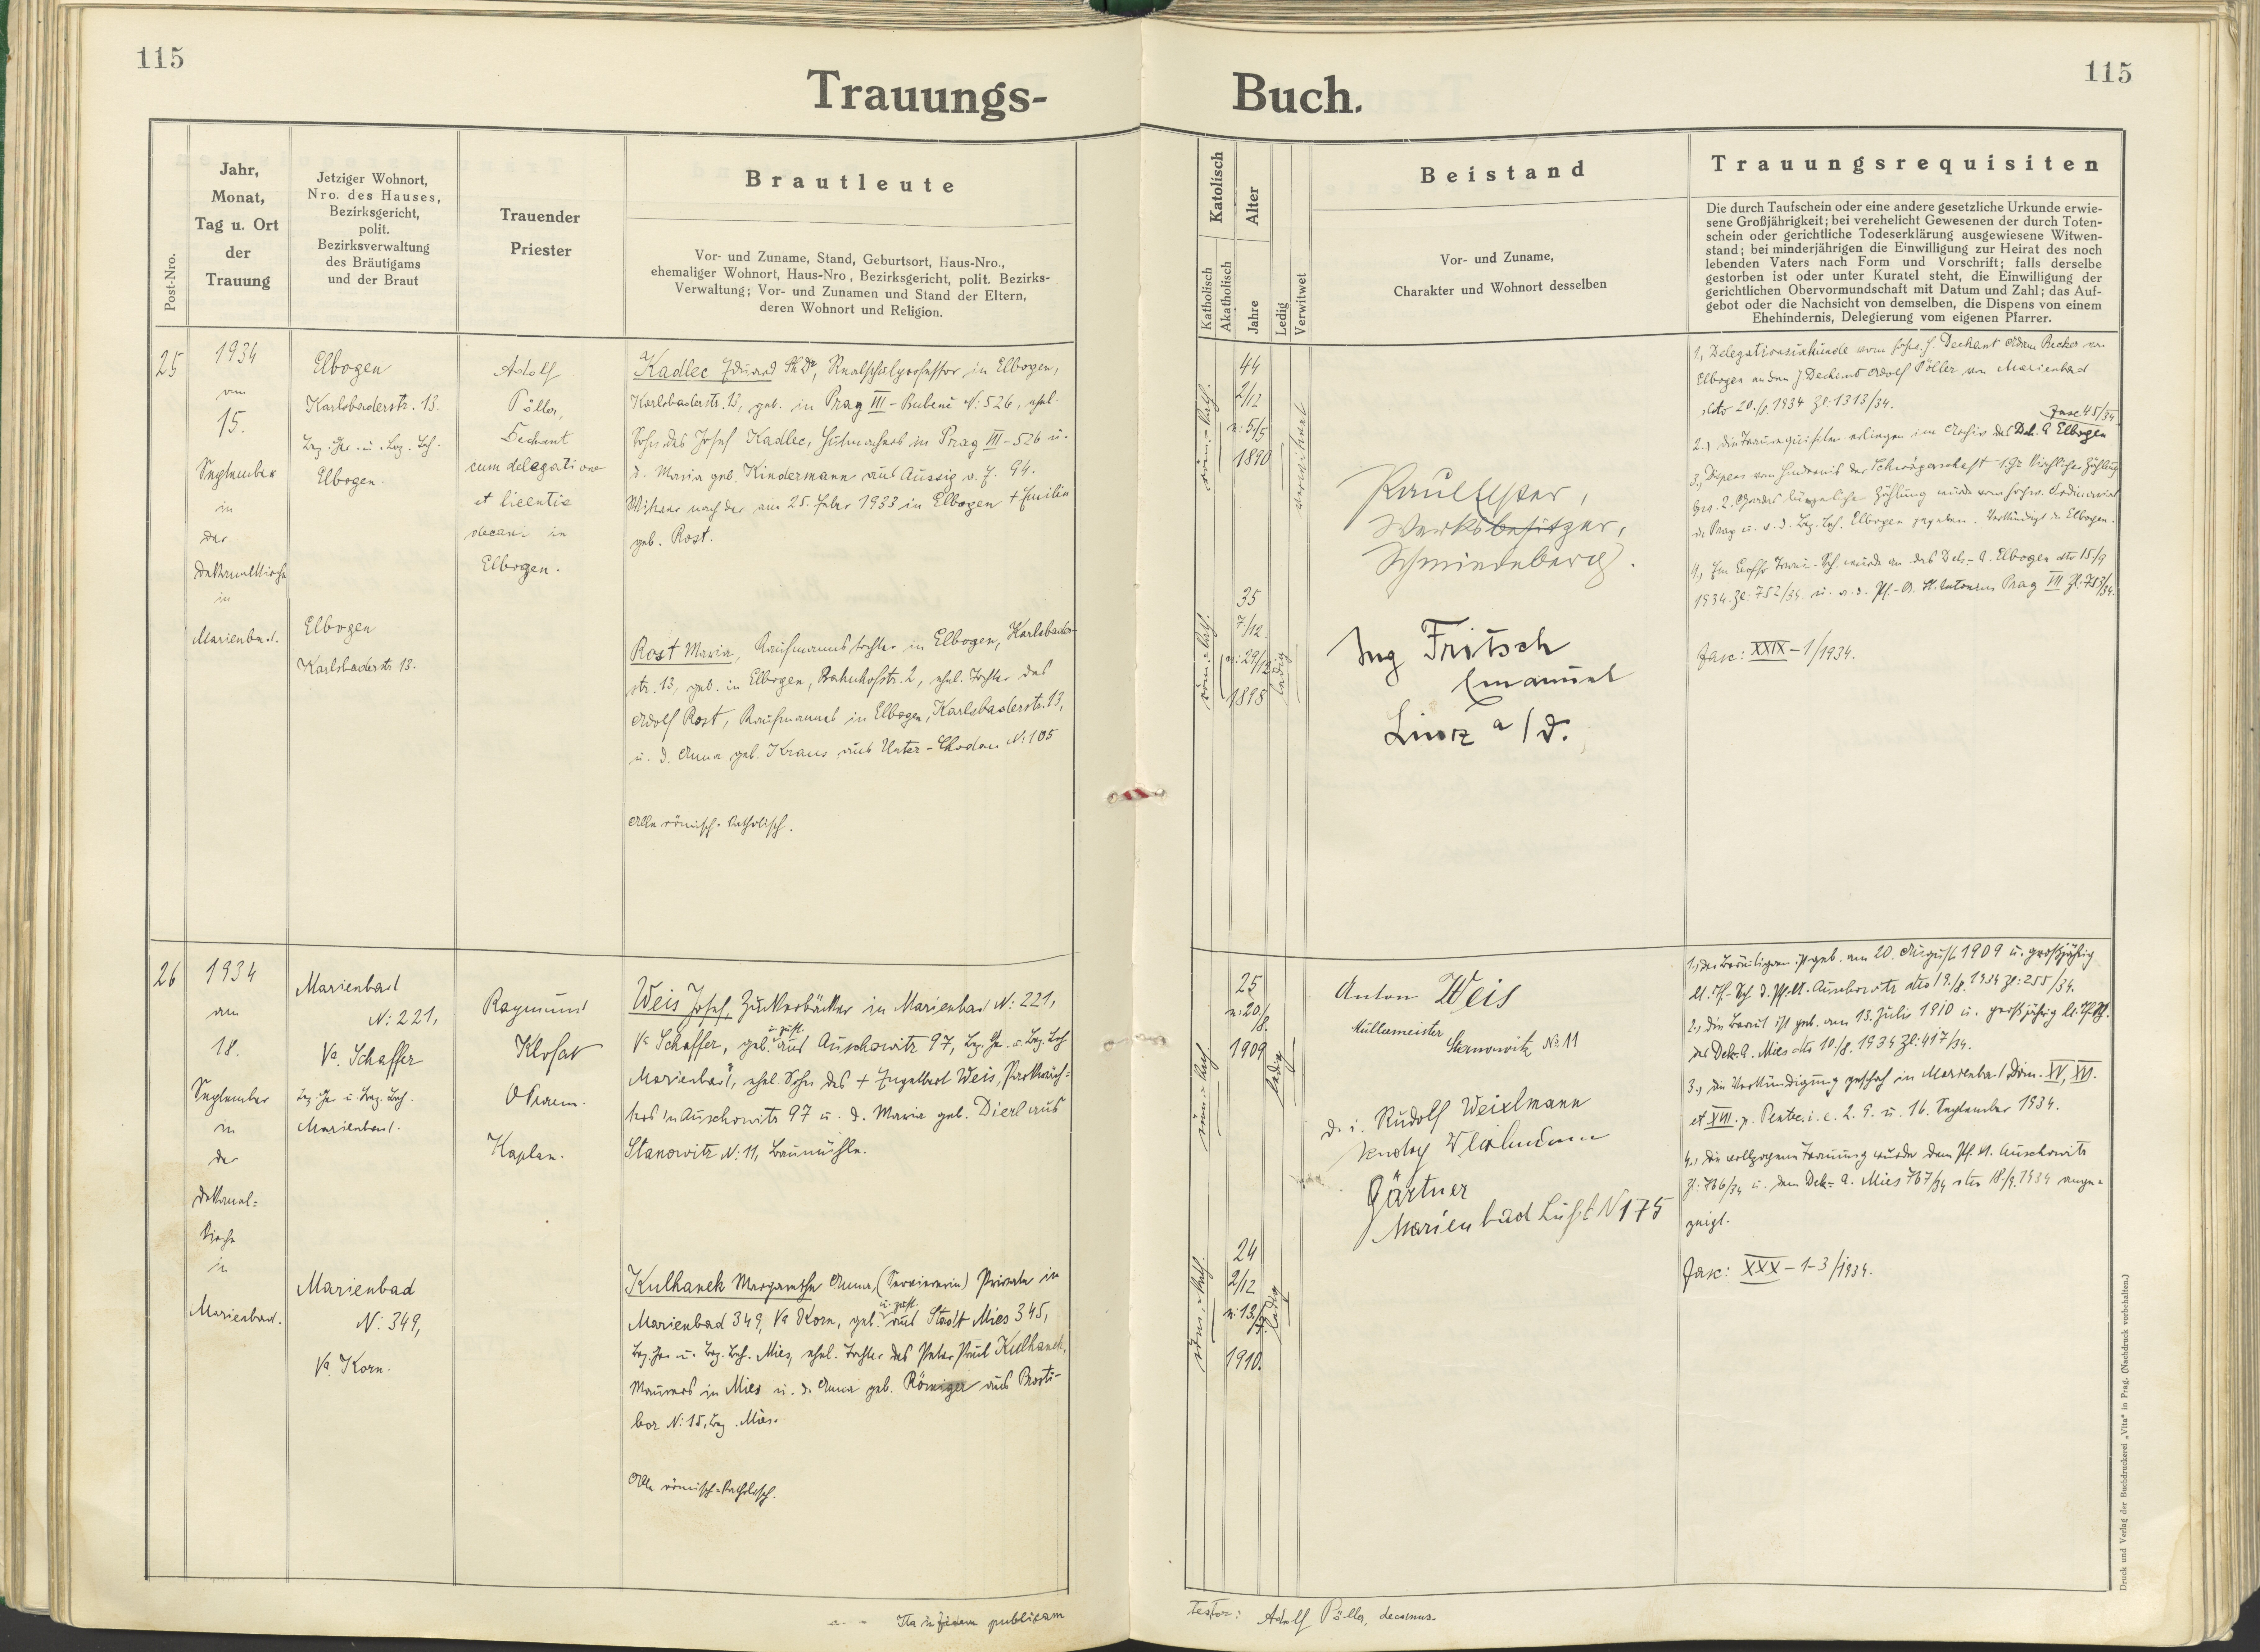 115
115
Trauungs-
Buch.
Post-Nro.
Jahr,
Monat,
Tag u. Ort
der
Trauung
Jetziger Wohnort,
Nro. des Hauses,
Bezirksgericht,
polit.
Bezirksverwaltung
des Bräutigams
und der Braut
Trauender
Priester
Brautleute
Vor- und Zuname, Stand, Geburtsort, Haus-Nro.,
ehemaliger Wohnort, Haus-Nro, Bezirksgericht, polit. Bezirks-
Verwaltung; Vor- und Zunamen und Stand der Eltern,
deren Wohnort und Religion.
Katolisch
Katholisch
Akatholisch
Alter
Jahre
Ledig
Verwitwet
Beistand
Vor- und Zuname,
Charakter und Wohnort desselben
Trauungsrequisiten
Die durch Taufschein oder eine andere gesetzliche Urkunde erwie-
sene Großjährigkeit; bei verehelicht Gewesenen der durch Toten-
schein oder gerichtliche Todeserklärung ausgewiesene Witwen-
stand; bei minderjährigen die Einwilligung zur Heirat des noch
lebenden Vaters nach Form und Vorschrift; falls derselbe
gestorben ist oder unter Kuratel steht, die Einwilligung der
gerichtlichen Obervormundschaft mit Datum und Zahl; das Auf-
gebot oder die Nachsicht von demselben, die Dispens von einem
Ehehindernis, Delegierung vom eigenen Pfarrer.
25
1934
am
15.
September
in
der
Dekanalkirche
in
Marienbad.
Elbogen
Karlsbaderstr. 13.
Bez. Ger. u. Bez. Beh.
Elbogen.
Elbogen
Karlsbaderstr. 13.
Adolf
Pöller,
Dechant
cum delegatione
et licentia
decani in
Elbogen.
Kadlec Eduard PhDr, Realschulprofessor in Elbogen,
Karlsbaderstr. 13, geb. in Prag VII - Bubenč N: 526, ehel.
Sohn des Josef Kadlec, Hutmachers in Prag VII - 526 u.
d. Maria geb. Kindermann aus Aussig a. E. 94.
Witwer nach der am 25. Feber 1933 in Elbogen + Emilie
geb. Rost.
Rost Maria, Kaufmannstochter in Elbogen, Karlsbader-
str. 13, geb. in Elbogen, Bahnhofstr. 2, ehel. Tochter des
Adolf Rost, Kaufmannes in Elbogen, Karlsbaderstr. 13,
u. d. Anna geb. Kraus aus Unter-Chodau N: 105
Alle römisch-katholisch.
röm.-kath.
44
2/12
n: 5/5
1890
verwitwet
röm.-kath.
35
7/12
n: 29/12
1898
ledig
Werksbesitzer,
Schmiedeberg.
Ing Fritsch
Emanuel
Linz a/D.
1., Delegationsurkunde vom hochw. H. Dechant Adam Becker von
Elbogen an den H Dechant Adolf Pöller von Marienbad
dto 20./8. 1934 Zl: 1313/34.
Fasc 45/34
2., die Traurequisiten erliegen im Archiv des Dek. A Elbogen
3., Dispens vom Hindernis der Schwägerschaft 1. Gr. kirchlicher Zählung
bzw. 2. Grades bürgerlicher Zählung wurde vom hochw. Ordinariat
in Prag u. v. d. Bez. Beh. Elbogen gegeben. Verkündigt in Elbogen.
4., Ein Trau-Sch. wurde an das Dek.-A. Elbogen dto 15./9
1934 Zl: 752/34 u. a. d. Pf.-A. St. Antonius Prag VII Zl: 753/34.
Fasc: XXIX - 1/1934.
26
1934
am
18.
September
in
der
Dekanal-
kirche
in
Marienbad.
Marienbad
N: 221,
Va Schaffer
Bez. Ger. u. Bez. Beh.
Marienbad.
Marienbad
N: 349,
Va Korn.
Raymund
Klofat
OPraem.
Kaplan.
Weis Josef, Zuckerbäcker in Marienbad N: 221,
u. zust.
Va Schaffer, geb. aus Auschowitz 97, Bez. Ger. u. Bez. Beh
Marienbad, ehel. Sohn des + Engelbert Weis, Parkwäch-
ters in Auschowitz 97 u. d. Maria geb. Dierl aus
Stanowitz N: 11, Baumühle.
Kulhanek Margarethe Anna, (Serviererin) Private in
u. zust.
Marienbad 349, Va Korn, geb. aus Stadt Mies 345,
Bez. Ger. u. Bez. Beh. Mies, ehel. Tochter des Peter Paul Kulhanek,
Maurers in Mies u. d. Anna geb. Römiger aus Prosti-
bor N: 15, Bez. Mies.
Alle römisch-katholisch.
röm.-kath.
25
n: 20/8.
1909
ledig
röm.-kath.
24
2/12
n: 13./7.
1910.
ledig
Anton Weis
Müllermeister
Stanowitz No 11
d. i. Rudolf Weixlmann
Gärtner
Marienbad N 175
1., der Bräutigam ist geb. am 20. August 1909 u. großjährig
lt. Tf.-Sch. d. Pf. A. Auschowitz dto 19./8. 1934 Zl: 255/34.
2., die Braut ist geb. am 13. Juli 1910 u. großjährig lt. Tf. Sch.
des Dek. A. Mies dto 10./8. 1934 Zl: 417/34.
3., die Verkündigung geschah in Marienbad Dom. XV, XVI.
et XVII. p. Pentec. i. e. 2. 9. u. 16. September 1934.
4., die vollzogene Trauung wurde dem Pf. A. Auschowitz
Zl: 766/34 u. dem Dek.- A. Mies 767/34 dto 18./9. 1934 ange-
zeigt.
Fasc: XXX - 1-3/1934.
Ita in fidem publicam
testor: Adolf Pöller, decanus.
Druck und Verlag der Buchdruckerei „Vita" in Prag. (Nachdruck vorbehalten.)